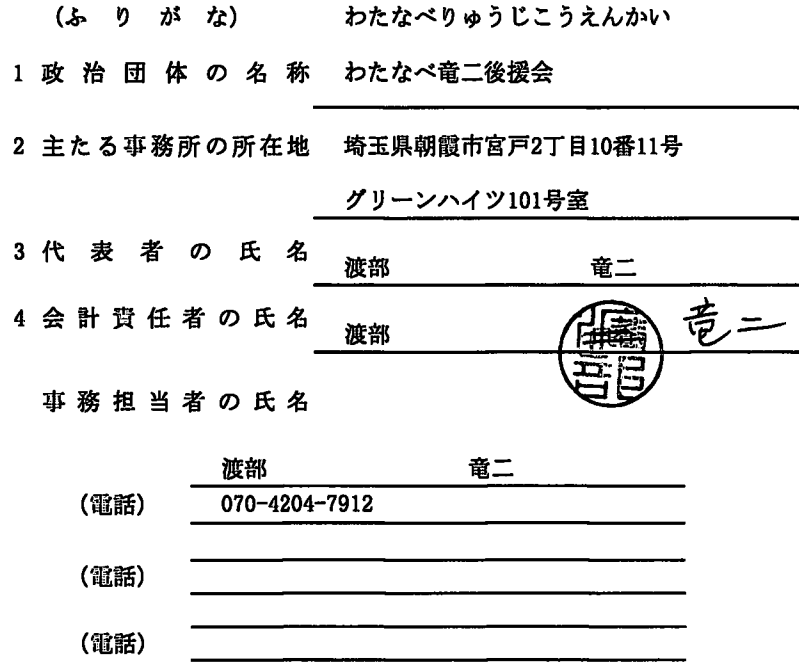 (ふりがな) わたなべりゅうじこうえんかい
1 政治団体の名称 わたなべ竜二後援会
2 主たる事務所の所在地 埼玉県朝霞市宮戸2丁目10番11号
グリーンハイツ101号室
3 代表者の氏名 渡部 竜二
4 会計責任者の氏名 渡部 竜二
事務担当者の氏名
渡部 竜二
(電話) 070-4204-7912
(電話)
(電話)